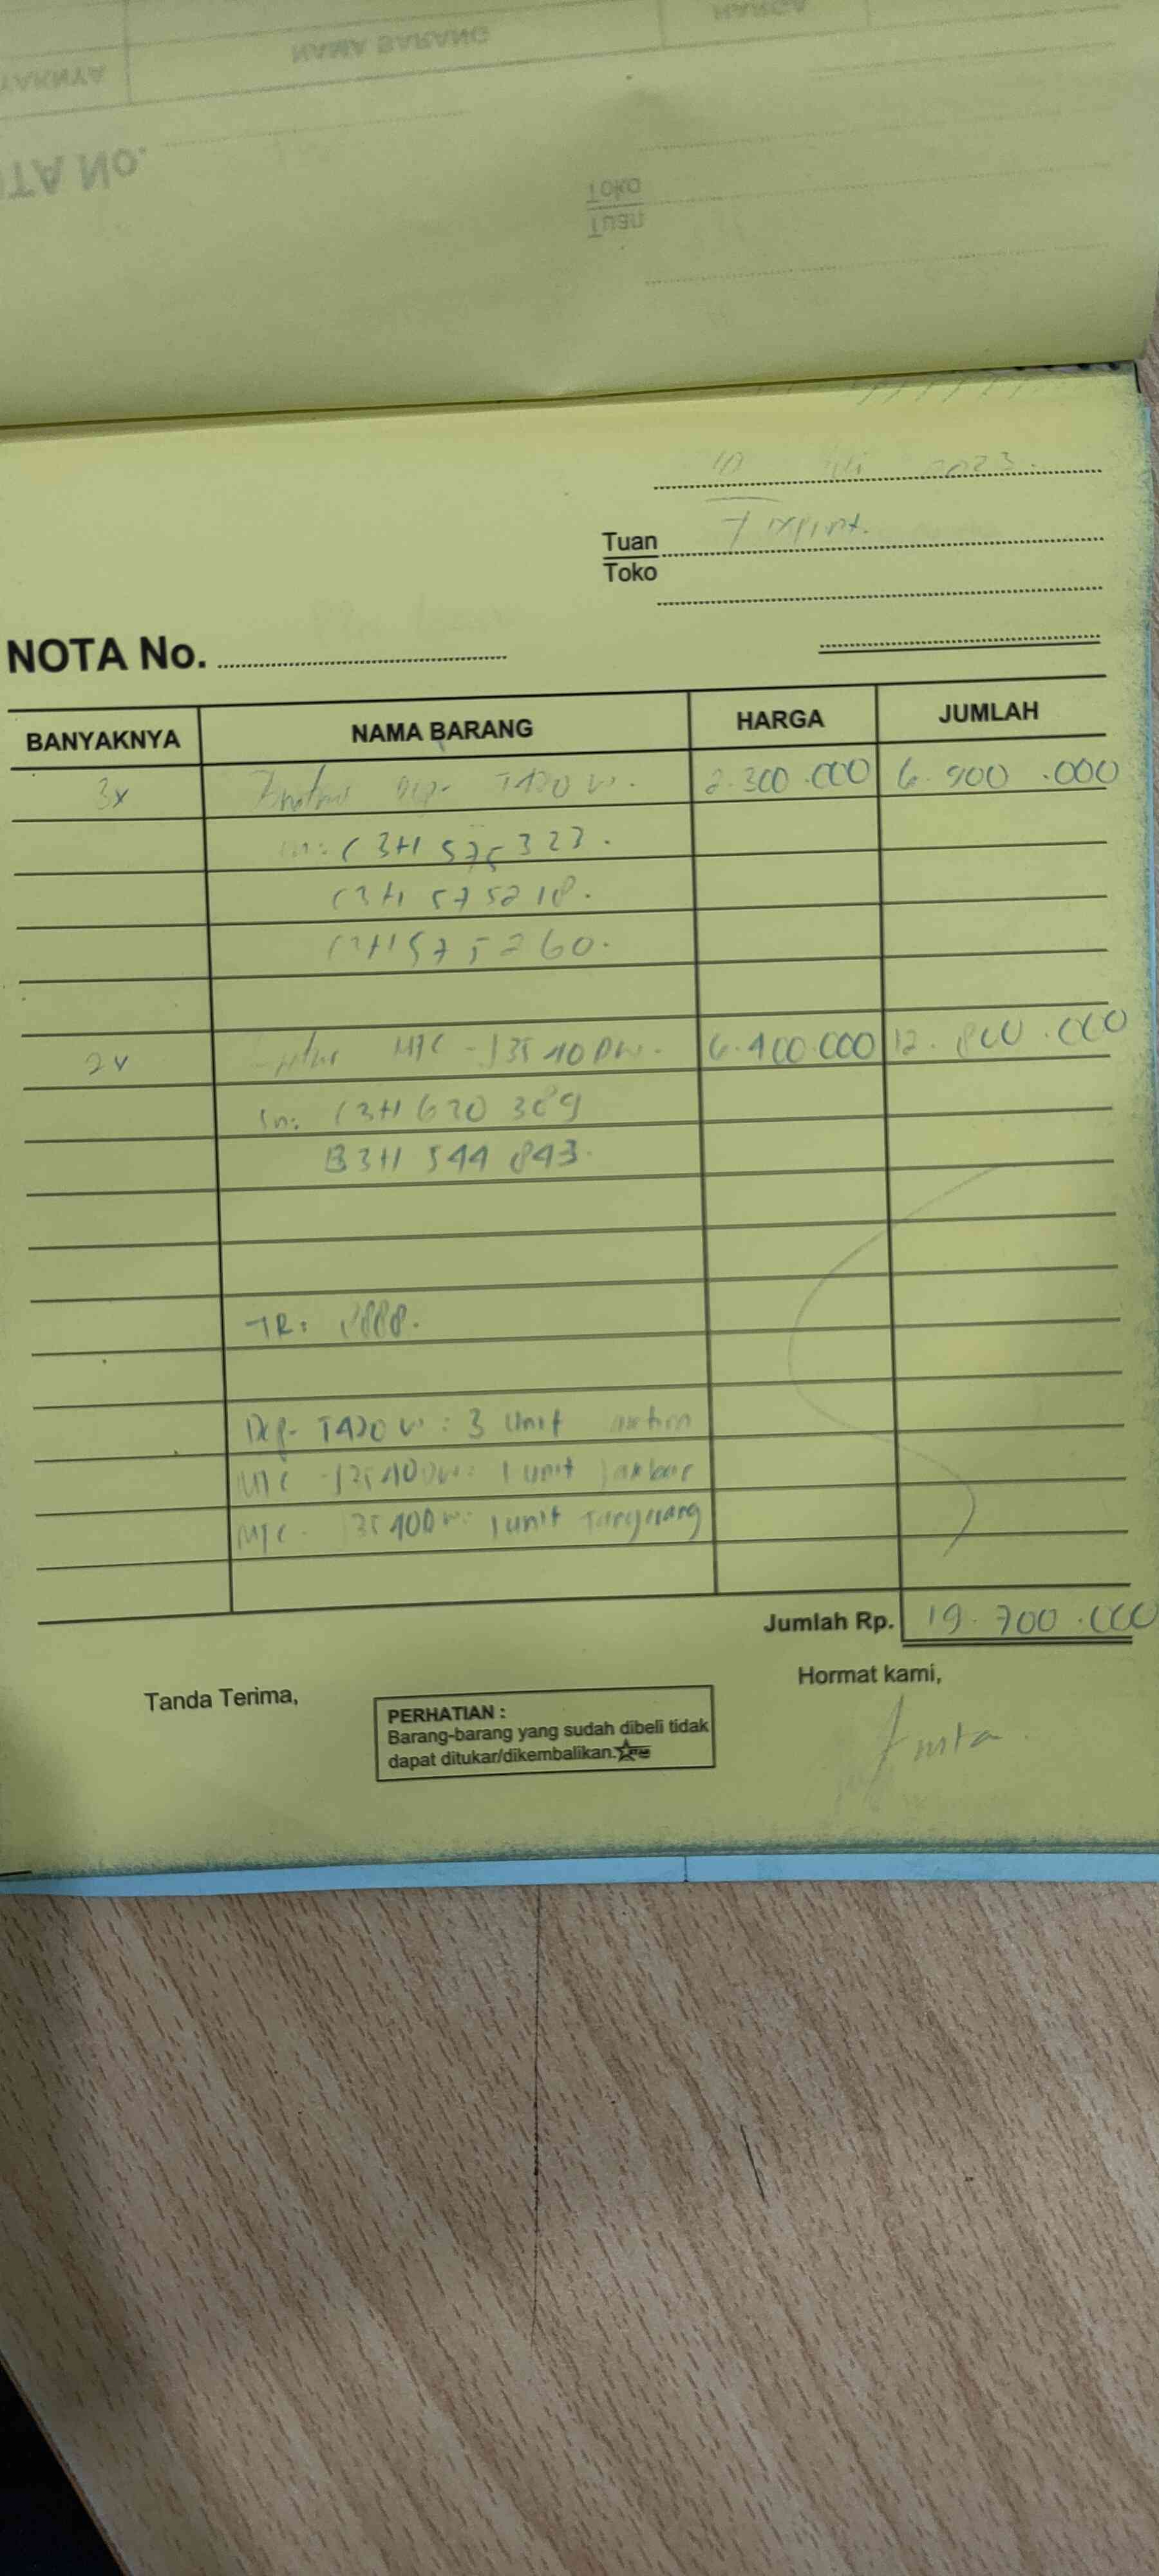 NAMA BARANG
HARGA
NOTA No.
Toko
Tuan
10 Juli 2023.
Tuan
Toko
NOTA No.
BANYAKNYA NAMA BARANG HARGA JUMLAH
3x Dcp- T420 W. 2.300.000 6.900.000
Sn: C3H 575323.
C3H 575218.
C3H 575260.
2x MFC - J3540DW. 6.400.000 12.800.000
Sn: C3H 620 389
B3H 544 843.
TR: 8888.
Dcp- T420 W : 3 Unit
MFC - J3540DW: 1 unit Jakbar
MFC - J3540DW: 1 unit Tangerang
Jumlah Rp. 19.700.000
Tanda Terima,
Hormat kami,
PERHATIAN :
Barang-barang yang sudah dibeli tidak
dapat ditukar/dikembalikan.